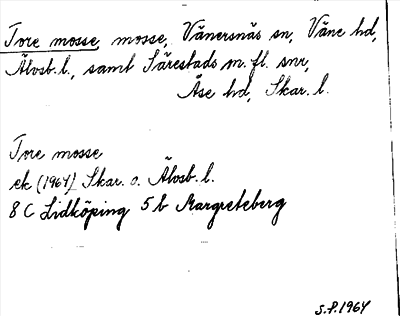 Tore mosse, mosse, Vänersnäs sn, Väne hd,
Älvsb. l., samt Särestads m. fl. snr,
Åse hd, Skar. l.
Tore mosse
ek (1964) Skar. o. Älvsb. l.
8 C Lidköping 5 b Margreteberg
S.P. 1964